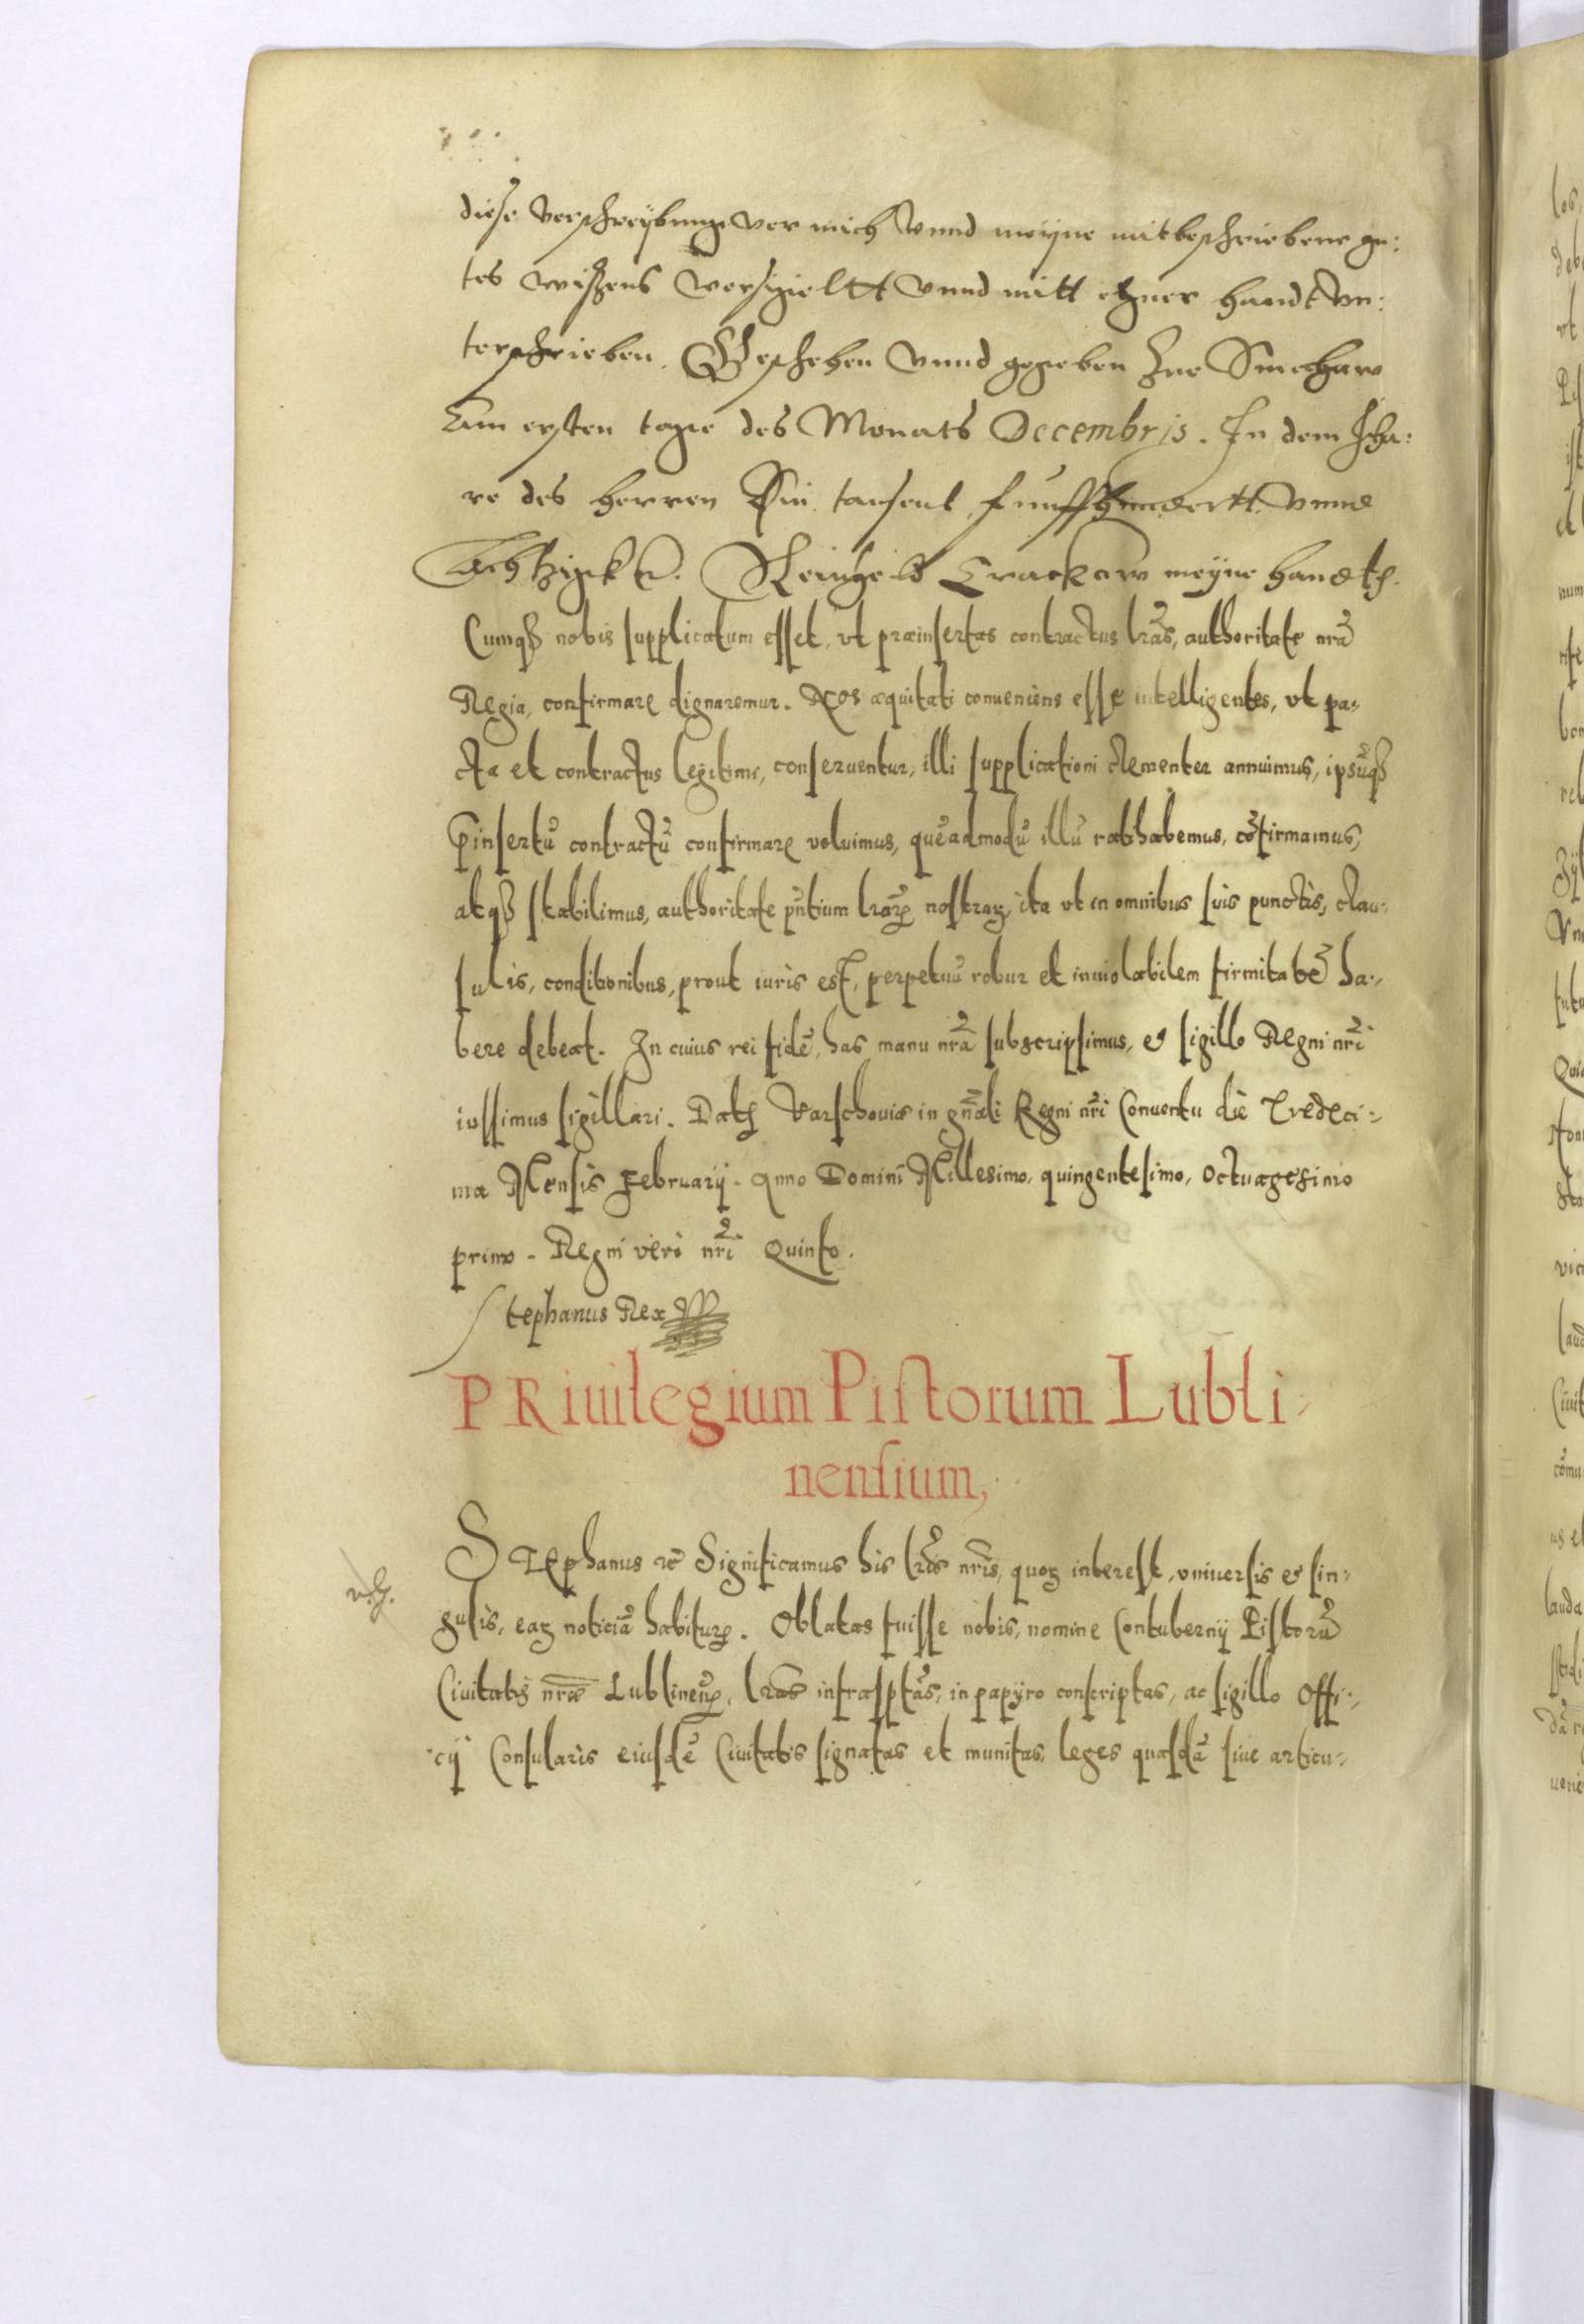 diese verschreybunge vor mich vnnd meyne mitbeschriebene gu:
tes wissens versigieltt vnnd mitt eyner handt vn:
terschrieben. Geschehen vnnd gegeben zue Smechaw
am ersten tage des Monats Decembris. In dem Jha:
re des herren Ein tausent funffhundertt vnnd
Achtzigk
Reinholt Crackow meyne handt
Cumqz nobis supplicatum esset, vt præinsertas contractus lras, authoritate nra
Regia, confirmare dignaremur. Nos æquitati conueniens esse intelligentes, vt pa-
cta et contractus legitime, conseruentur, illi supplicationi clementer annuimus, ipsuqz
pinsertu contractu confirmare voluimus, queadmodu illu rathabemus, cofirmamus,
atqz stabilimus, authoritate pntium lrarz nostrarz, ita vt in omnibus suis punctis, clau-
sulis, conditionibus, prout iuris est, perpetuu robur et inuiolabilem firmitate ha-
bere debeat. In cuius rei fide, has manu nra subscripsimus, et sigillo Regni nri
iussimus sigillari. Dat Varschouiæ in gnali Regni nri Conuentu die Tredeci-
ma Mensis Februarij. Anno Domini Millesimo, quingentesimo, octuagesimo
primo. Regni vero nri Quinto.
Stephanus Rex
PRiuilegium Pistorum Lubli-
nensium,
STephanus rc Significamus his lris nris, quorz interest, vniuersis et sin-
gulis, earz noticia habiturz. Oblatas fuisse nobis, nomine Contubernij Pistoru
Ciuitatis nræ Lublinen, lras infrasptas, in papyro conscriptas, ac sigillo Offi-
cij Consularis eiusde Ciuitatis signatas et munitas, leges quasda siue articu-